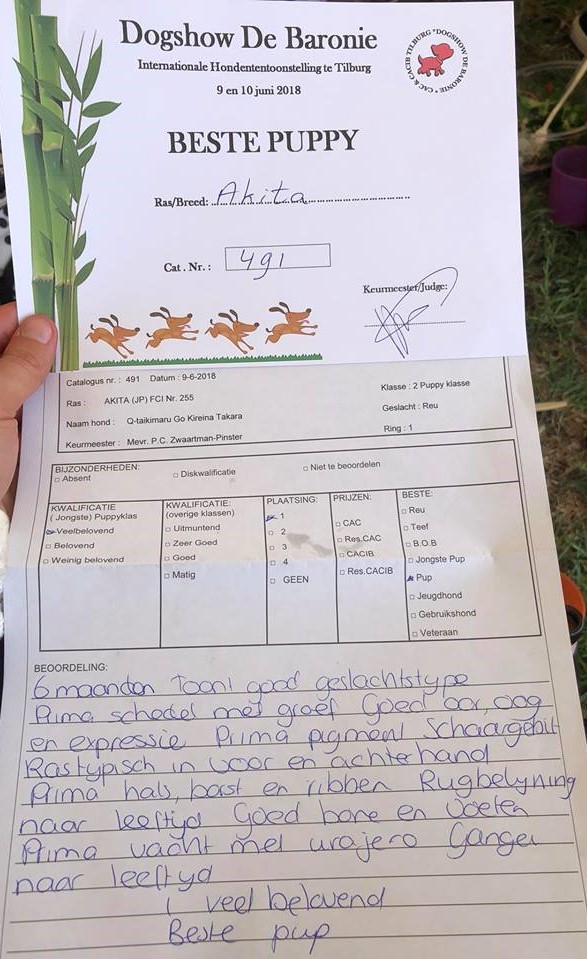 Dogshow De Baronie
Internationale Hondententoonstelling te Tilburg
9 en 10 juni 2018
DOGSHOW DE BARONIE * CAC & CACIB TILBURG *
BESTE PUPPY
Ras/Breed: Akita
Cat. Nr.: 491
Keurmeester/Judge:
Catalogus nr. : 491 Datum : 9-6-2018
Klasse : 2 Puppy klasse
Ras : AKITA (JP) FCI Nr. 255
Geslacht : Reu
Naam hond : Q-taikimaru Go Kireina Takara
Ring : 1
Keurmeester : Mevr. P.C. Zwaartman-Pinster
BIJZONDERHEDEN:
□ Absent
□ Diskwalificatie
□ Niet te beoordelen
KWALIFICATIE
( Jongste) Puppyklas
Veelbelovend
□ Belovend
□ Weinig belovend
KWALIFICATIE:
(overige klassen)
□ Uitmuntend
□ Zeer Goed
□ Goed
□ Matig
PLAATSING:
1
□ 2
□ 3
□ 4
□ GEEN
PRIJZEN:
□ CAC
□ Res.CAC
□ CACIB
□ Res.CACIB
BESTE:
□ Reu
□ Teef
□ B.O.B
□ Jongste Pup
Pup
□ Jeugdhond
□ Gebruikshond
□ Veteraan
BEOORDELING:
6 maanden Toont goed geslachtstype
Prima schedel met groef Goed oor, oog
en expressie Prima pigment Schaargebit
Rastypisch in voor en achterhand
Prima hals, borst en ribben Rugbelyning
naar leeftyd Goed bone en voeten
Prima vacht met urajero Gangen
naar leeftyd
1 veel belovend
Beste pup